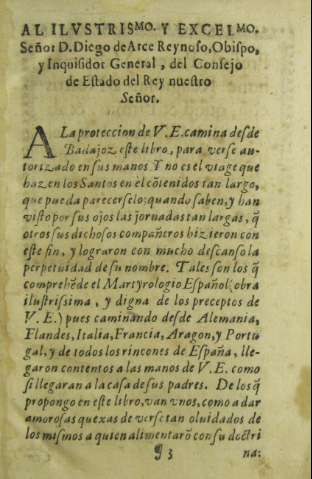 AL ILVSTRISMO. Y EXCELMO.
Señor D. Diego de Arce Reynoso, Obispo,
y Inquisidor General, del Consejo
de Estado del Rey nuestro
Señor.
A La proteccion de V. E. camina desde
Badajoz este libro, para verse au-
torizado en sus manos Y no es el viage que
hazen los Santos en el cōtenidos tan largo,
que pueda parecerselo: quando saben, y han
visto por sus ojos las jornadas tan largas, q̃
otros sus dichosos compañeros hizieron con
este fin, y lograron con mucho descanso la
perpetuidad de su nombre. Tales son los q̃
comprehēde el Martyrologio Español (obra
ilustrissima, y digna de los preceptos de
V. E.) pues caminando desde Alemania,
Flandes, Italia, Francia, Aragon, y Portu
gal, y de todos los rincones de España, lle-
garon contentos a las manos de V. E. como
si llegaran a la casa de sus padres. De los q̃
propongo en este libro, van vnos, como a dar
amorosas quexas de verse tan oluidados de
los mismos a quien alimentarō con su doctri
¶ 3 na: